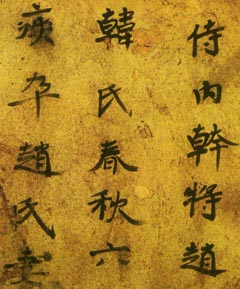 侍内幹将趙
韓氏春秋六
疾卒趙氏妻